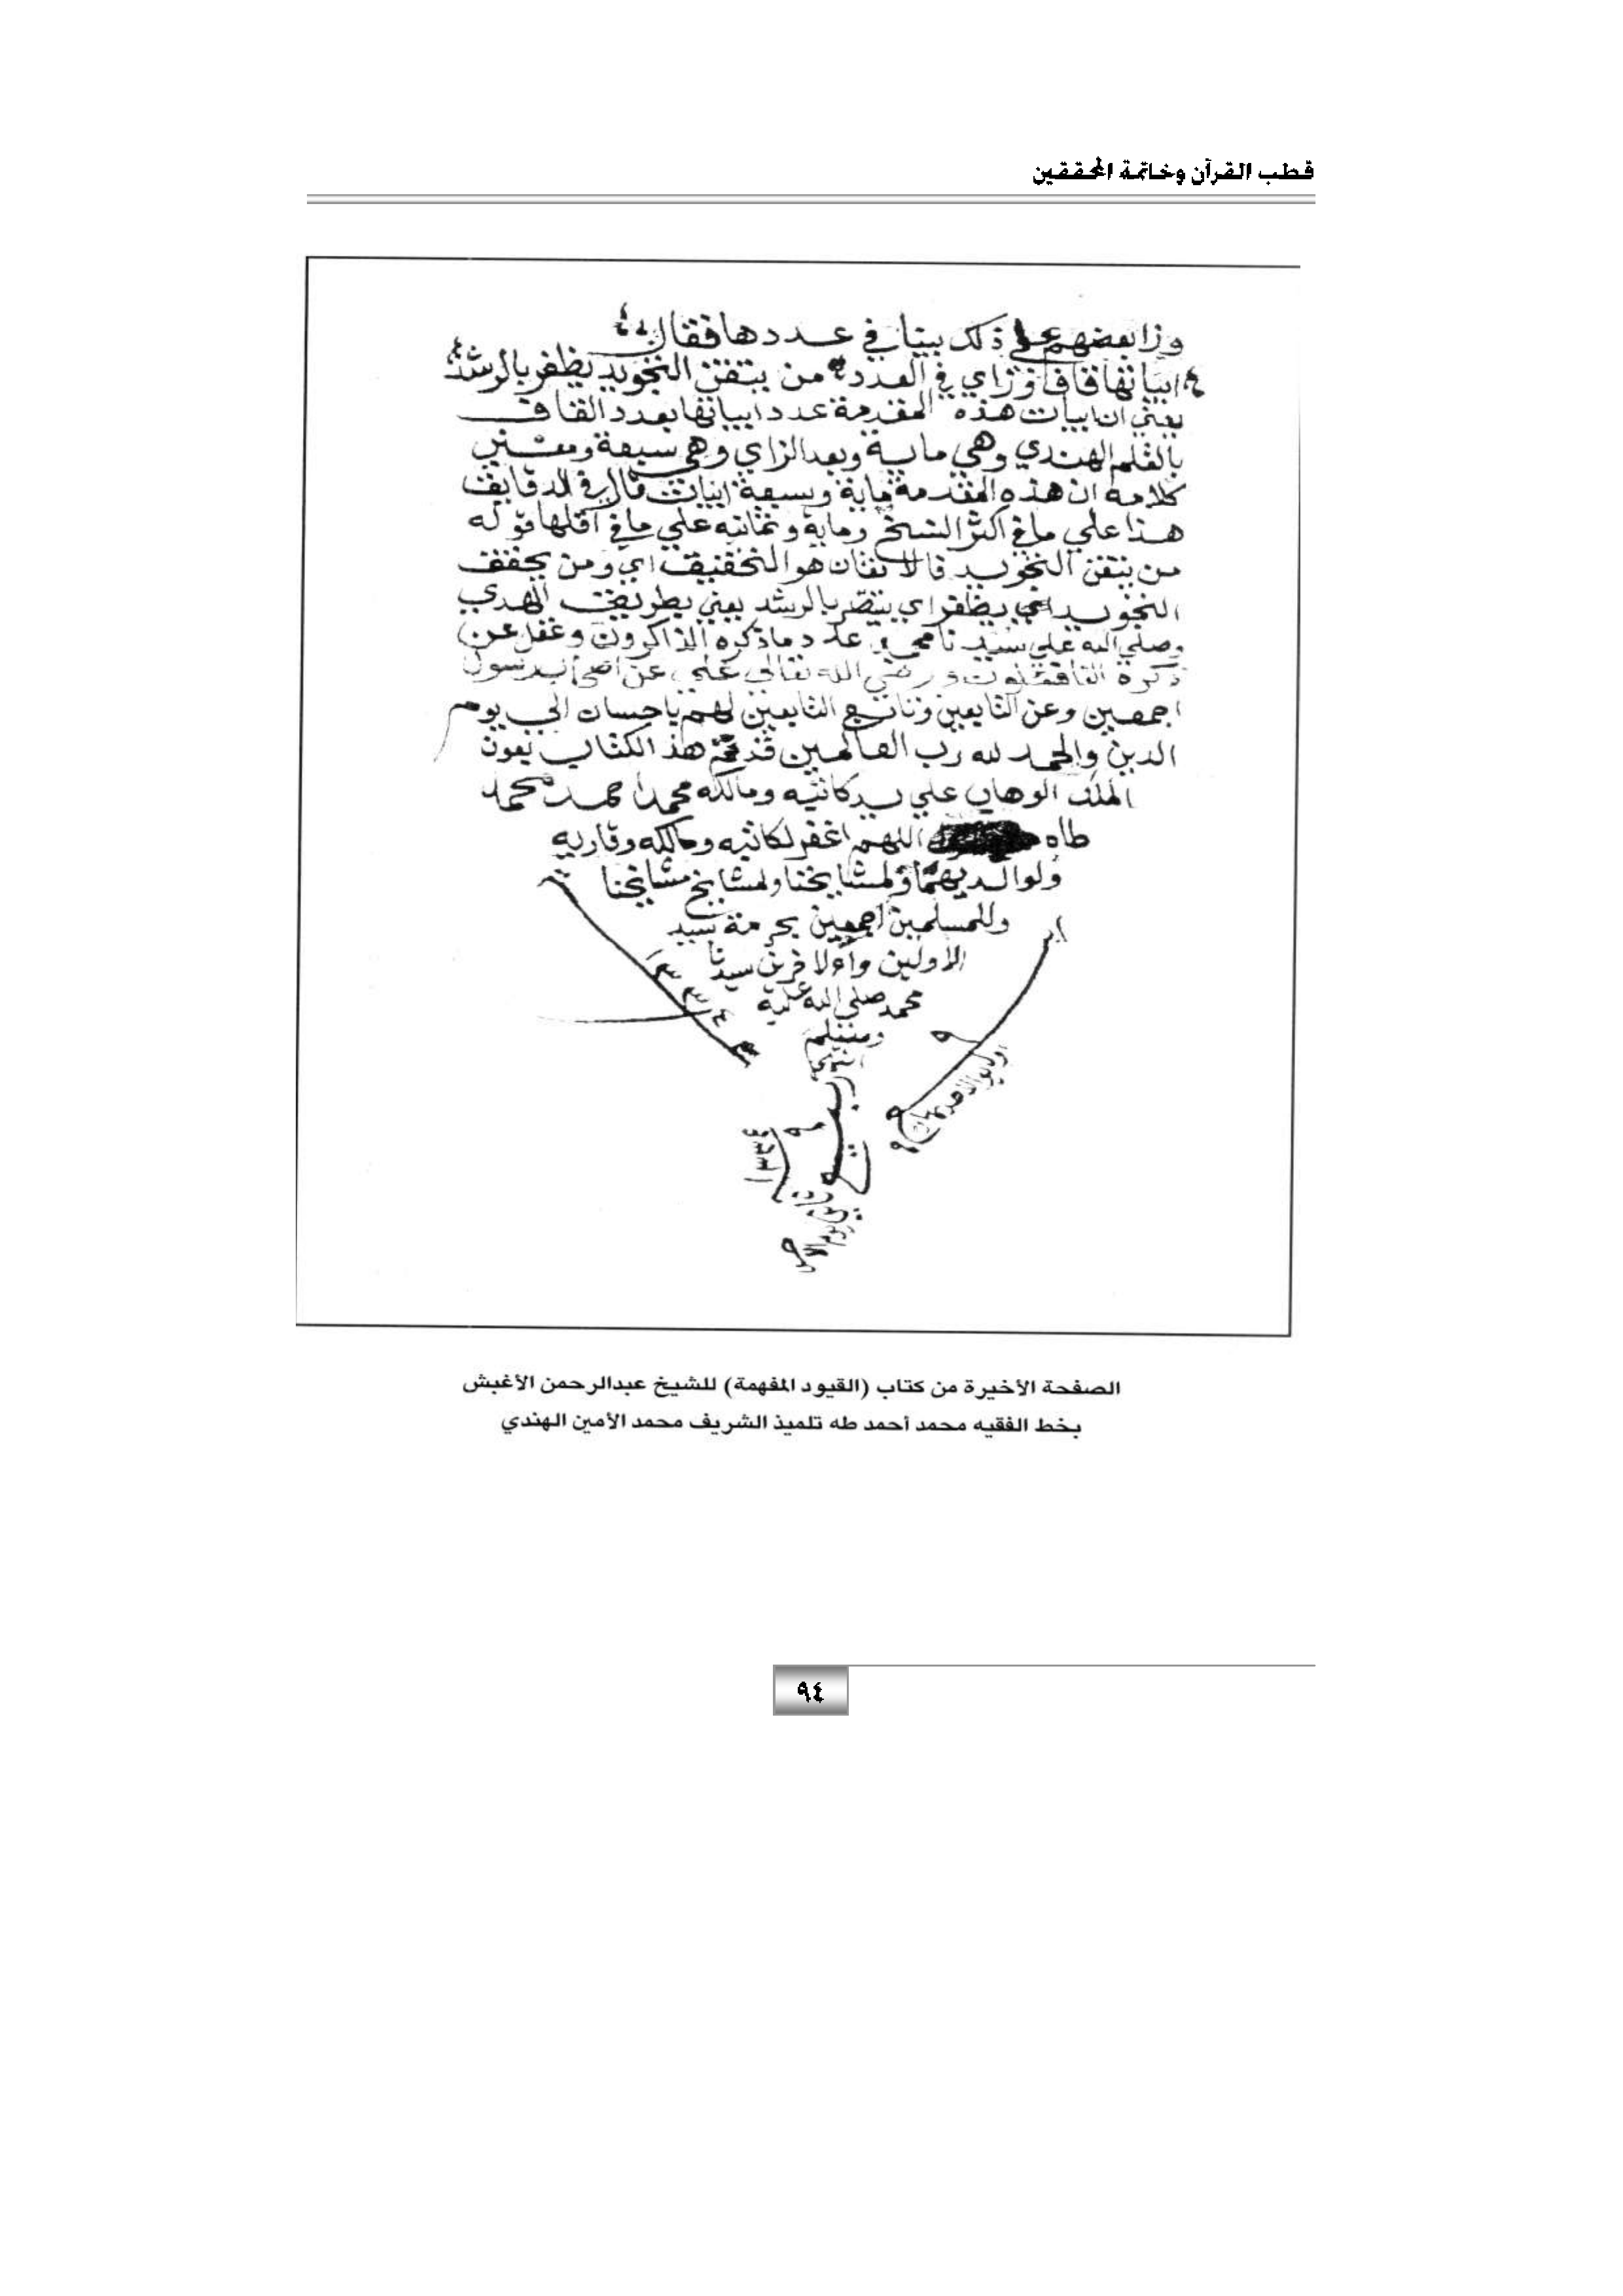 قطب القرآن وخاتمة المحققين
وزا بعضهم علي ذلك بيتا في عددها فقال
ابياتها قاف وزاي في العدد من يتقن التجويد يظفر بالرشد
يعني ان ابيات هذه المقدمة عدد ابياتها بعدد القاف
بالقلم الهندي وهي ماية وبعد الزاي وهي سبعة ومعني
كلامه ان هذه المقدمة ماية وسبعة ابيات قال في الدقايق
هذا علي ما في اكثر النسخ وماية وثمانية علي ما في اقلها قوله
من يتقن التجويد فالاتقان هو التحقيق اي ومن يحقق
التجويد يظفر اي ينتصر بالرشد يعني بطريق الهدي
وصلي الله علي سيدنا محمد عدد ما ذكره الذاكرون وغفل عن
ذكره الغافلون ورضي الله تعالي عن اصحاب رسول
اجمعين وعن التابعين وتابع التابعين لهم باحسان الي يوم
الدين والحمد لله رب العالمين قد تم هذ الكتاب بعون
الملك الوهاب علي يد كاتبه ومالكه محمد احمد محمد
طاه اللهم اغفر لكاتبه ومالكه وقاريه
ولوالديهما ولمشايخنا ولمشايخ مشايخنا
وللمسلمين اجمعين بحرمة سيد
الاولين والاخرين سيدنا
محمد صلي الله عليه
وسلم
انتهي
١٣٣٤
١٣٣٤
الصفحة الأخيرة من كتاب (القيود المفهمة) للشيخ عبدالرحمن الأغبش
بخط الفقيه محمد أحمد طه تلميذ الشريف محمد الأمين الهندي
٩٤